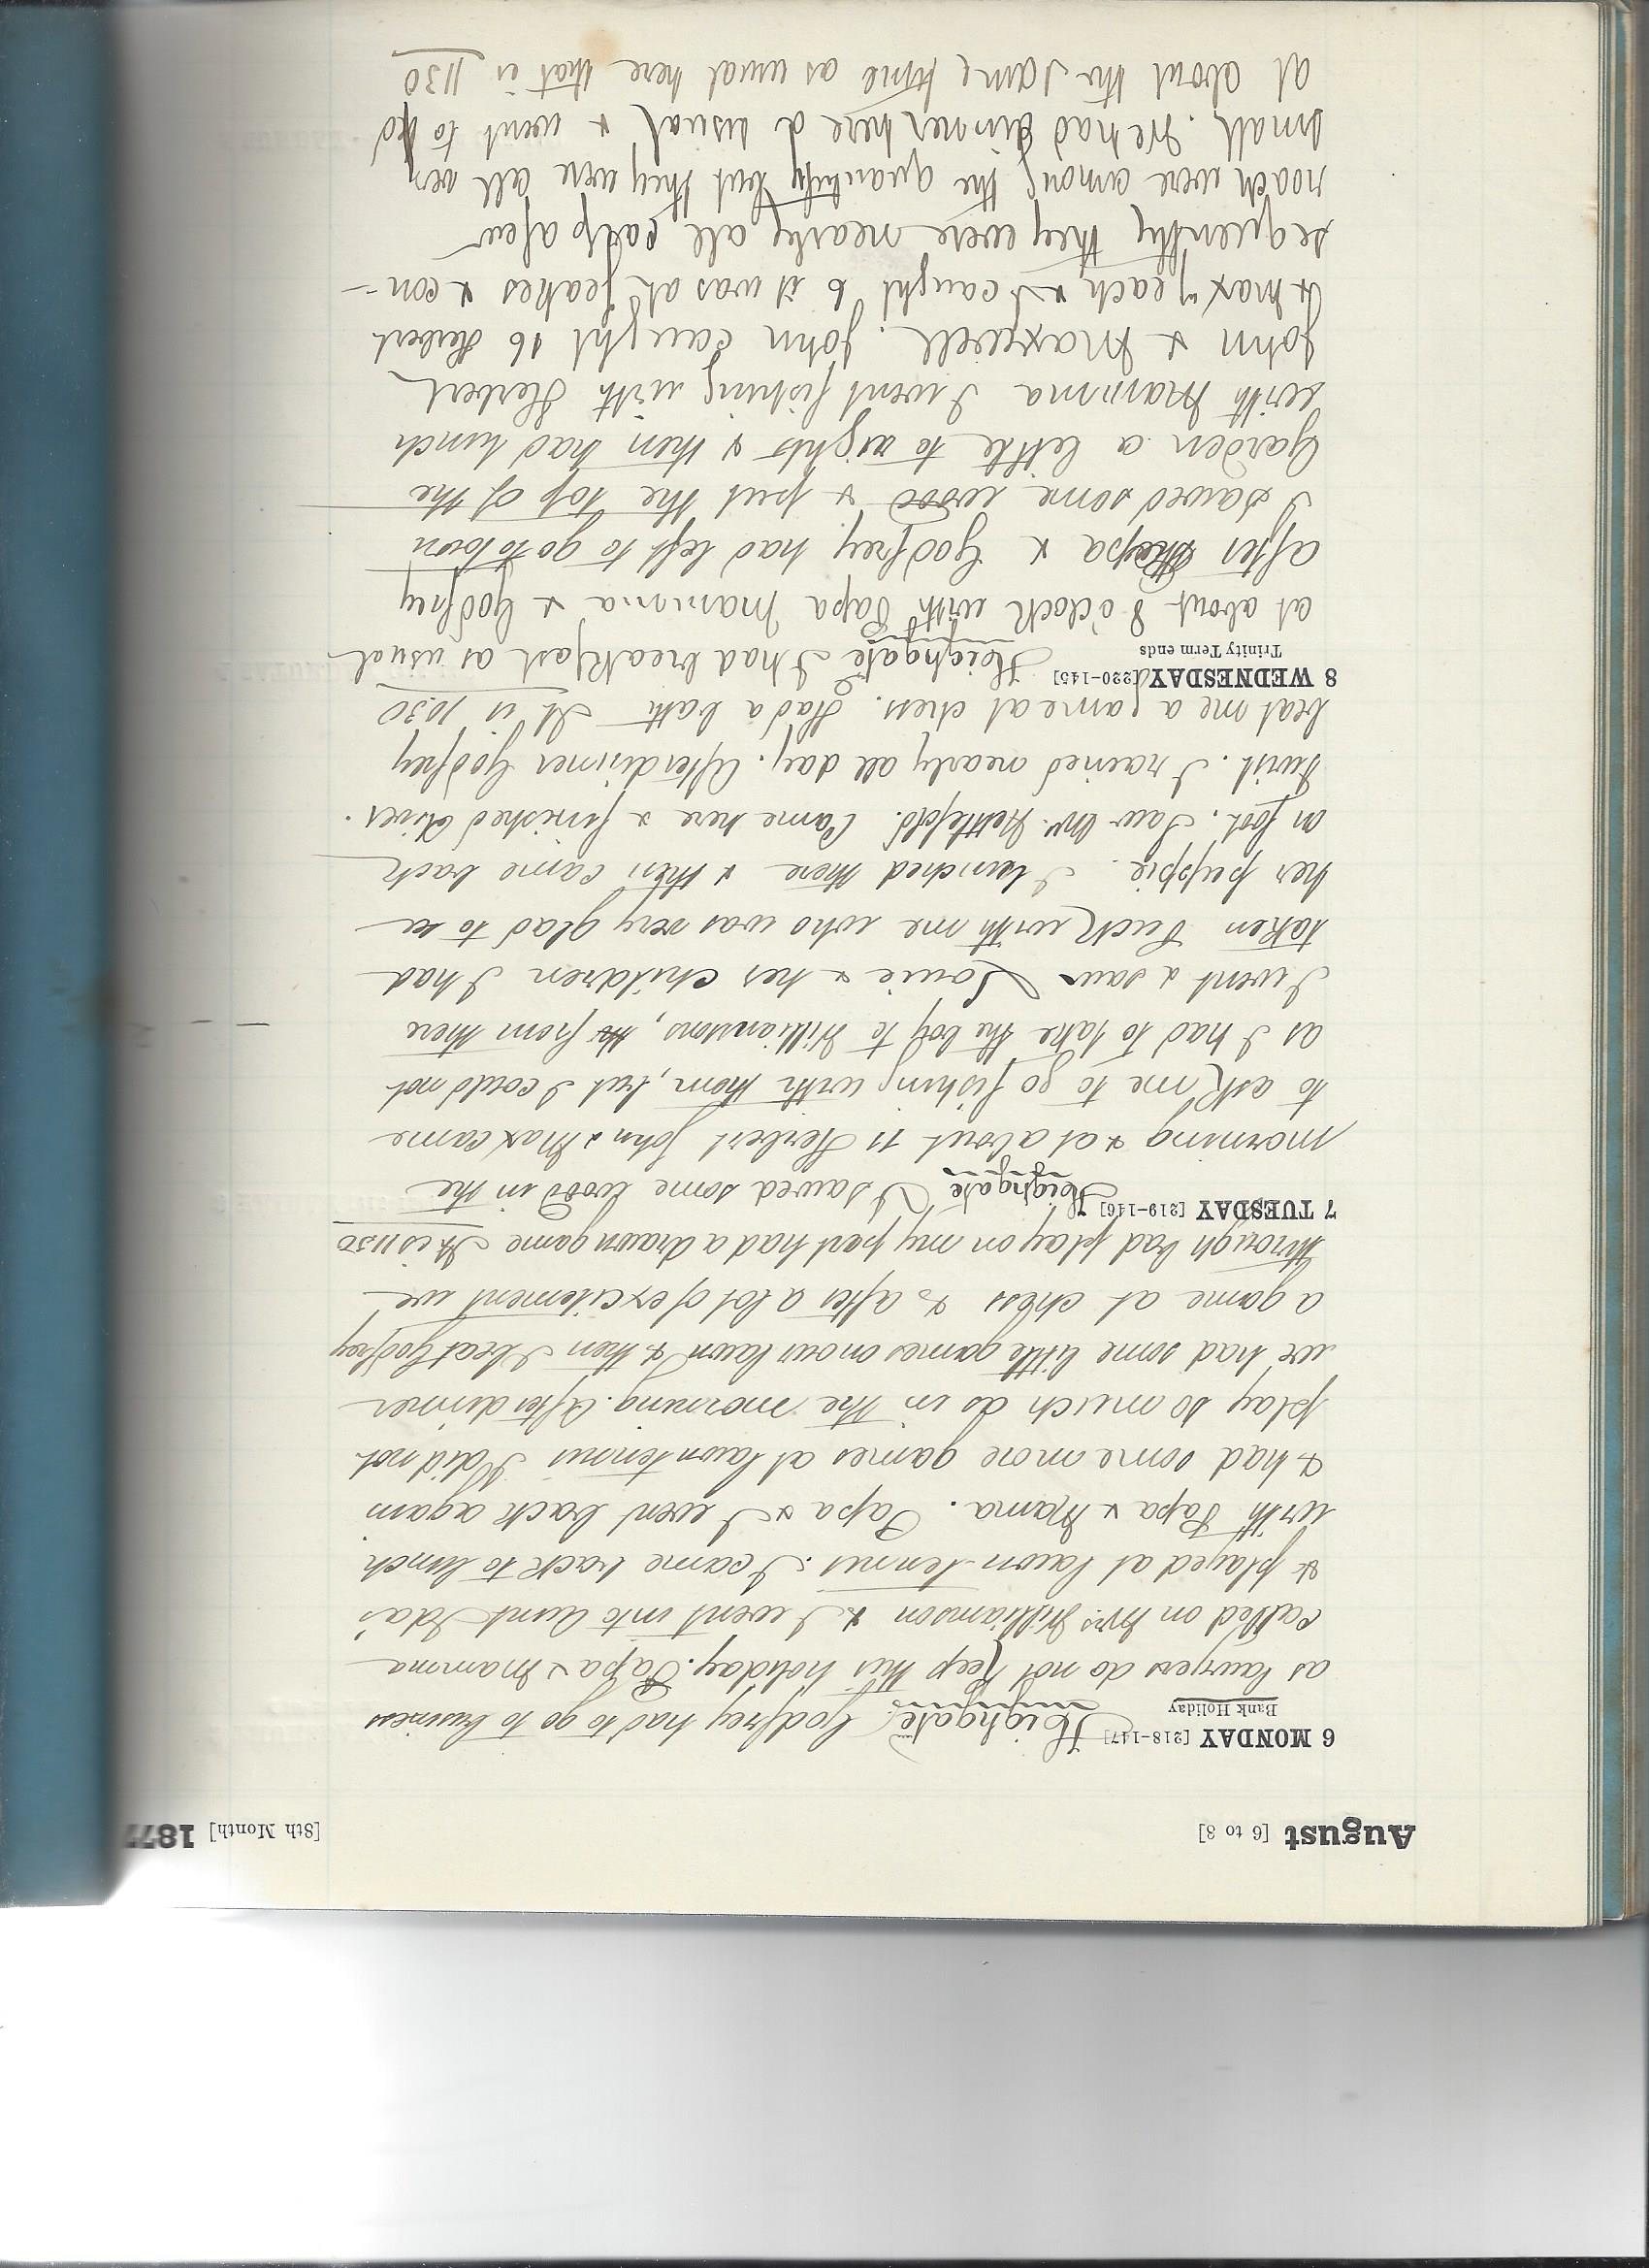 August [6 to 8] [8th Month] 187
6 MONDAY [218-147] Highgate. Godfrey had to go to business
Bank Holiday
as lawyers do not keep this holiday. Papa & Mamma
called on Mrs. Williamson & I went into Aunt Ida's
& played at lawn tennis. I came back to lunch
with Papa & Mama. Papa & I went back again
& had some more games at lawn tennis I did not
play so much as in the morning. After dinner
we had some little games on our lawn & then I beat Godfrey
a game at chess & after a lot of excitement we
through bad play on my part had a drawn game It is 11 30
7 TUESDAY [219-146] Highgate I sawed some wood in the
morning & at about 11 Herbert John & Max came
to ask me to go fishing with them, but I could not
as I had to take the boy to Williamsons, from there
I went & saw Louie & her children I had
taken Puck with me who was very glad to see
her puppie. I lunched there & then came back
on foot. Saw Mr. Nettlefold. Came here & finished Oliver
Twist. I rained nearly all day. After dinner Godfrey
beat me a game at chess. Had a bath It is 10 30
8 WEDNESDAY [220-145] Highgate I had breakfast as usual
Trinity Term ends
at about 8 o'clock with Papa Mamma & Godfrey
after Papa & Godfrey had left to go to town
I sawed some wood & put the top of the
Garden a little to rights & then had lunch
with Mamma I went fishing with Herbert
John & Maxwell. John caught 16 Herbert
& Max 7 each & I caught 6 it was at Jeakes & con-
sequently they were nearly all carp a few
roach were among the quantity but they were all very
small. We had dinner here a usual & went to bed
at about the same time as usual here that is 11 30